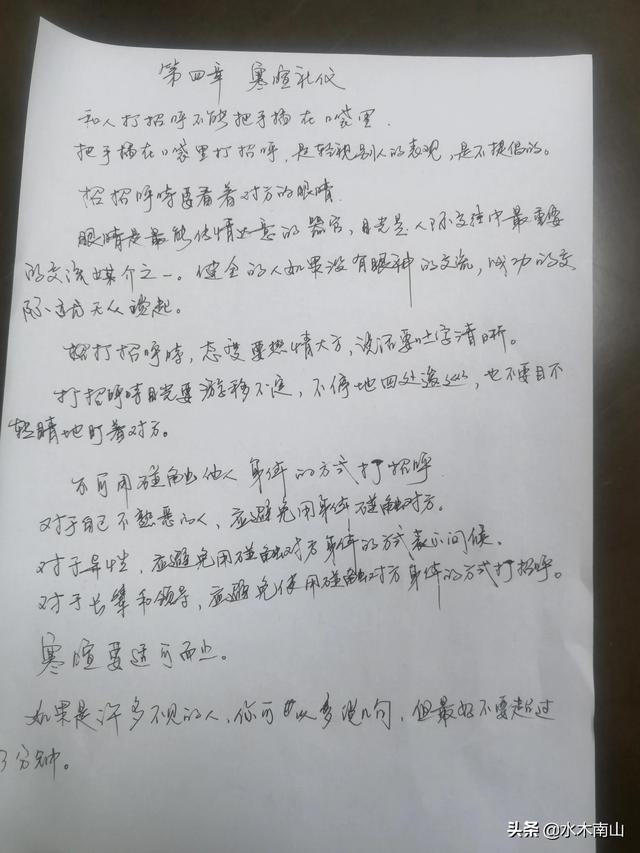 第四章 寒暄礼仪
和人打招呼不能把手插在口袋里.
把手插在口袋里打招呼，是轻视别人的表现，是不提倡的。
招招呼时要看着对方的眼睛.
眼睛是最能传情达意的器官，目光是人际交往中最重要
的交流媒介之一。健全的人如果没有眼神的交流，成功的交
际方无从谈起。
打招呼时，态度要热情大方，说话要吐字清晰。
打招呼时目光要游移不定，不停地四处逡巡，也不要目不
转睛地盯着对方。
不可用碰触他人身体的方式打招呼
对于自己不熟悉的人，应避免用身体碰触对方。
对于异性，应避免用碰触对方身体的方式表示问候。
对于长辈和领导，应避免使用碰触对方身体的方式打招呼。
寒暄要适可而止。
如果是许多不见的人，你可以多说几句，但最好不要超过
3分钟。
头条 @水木南山